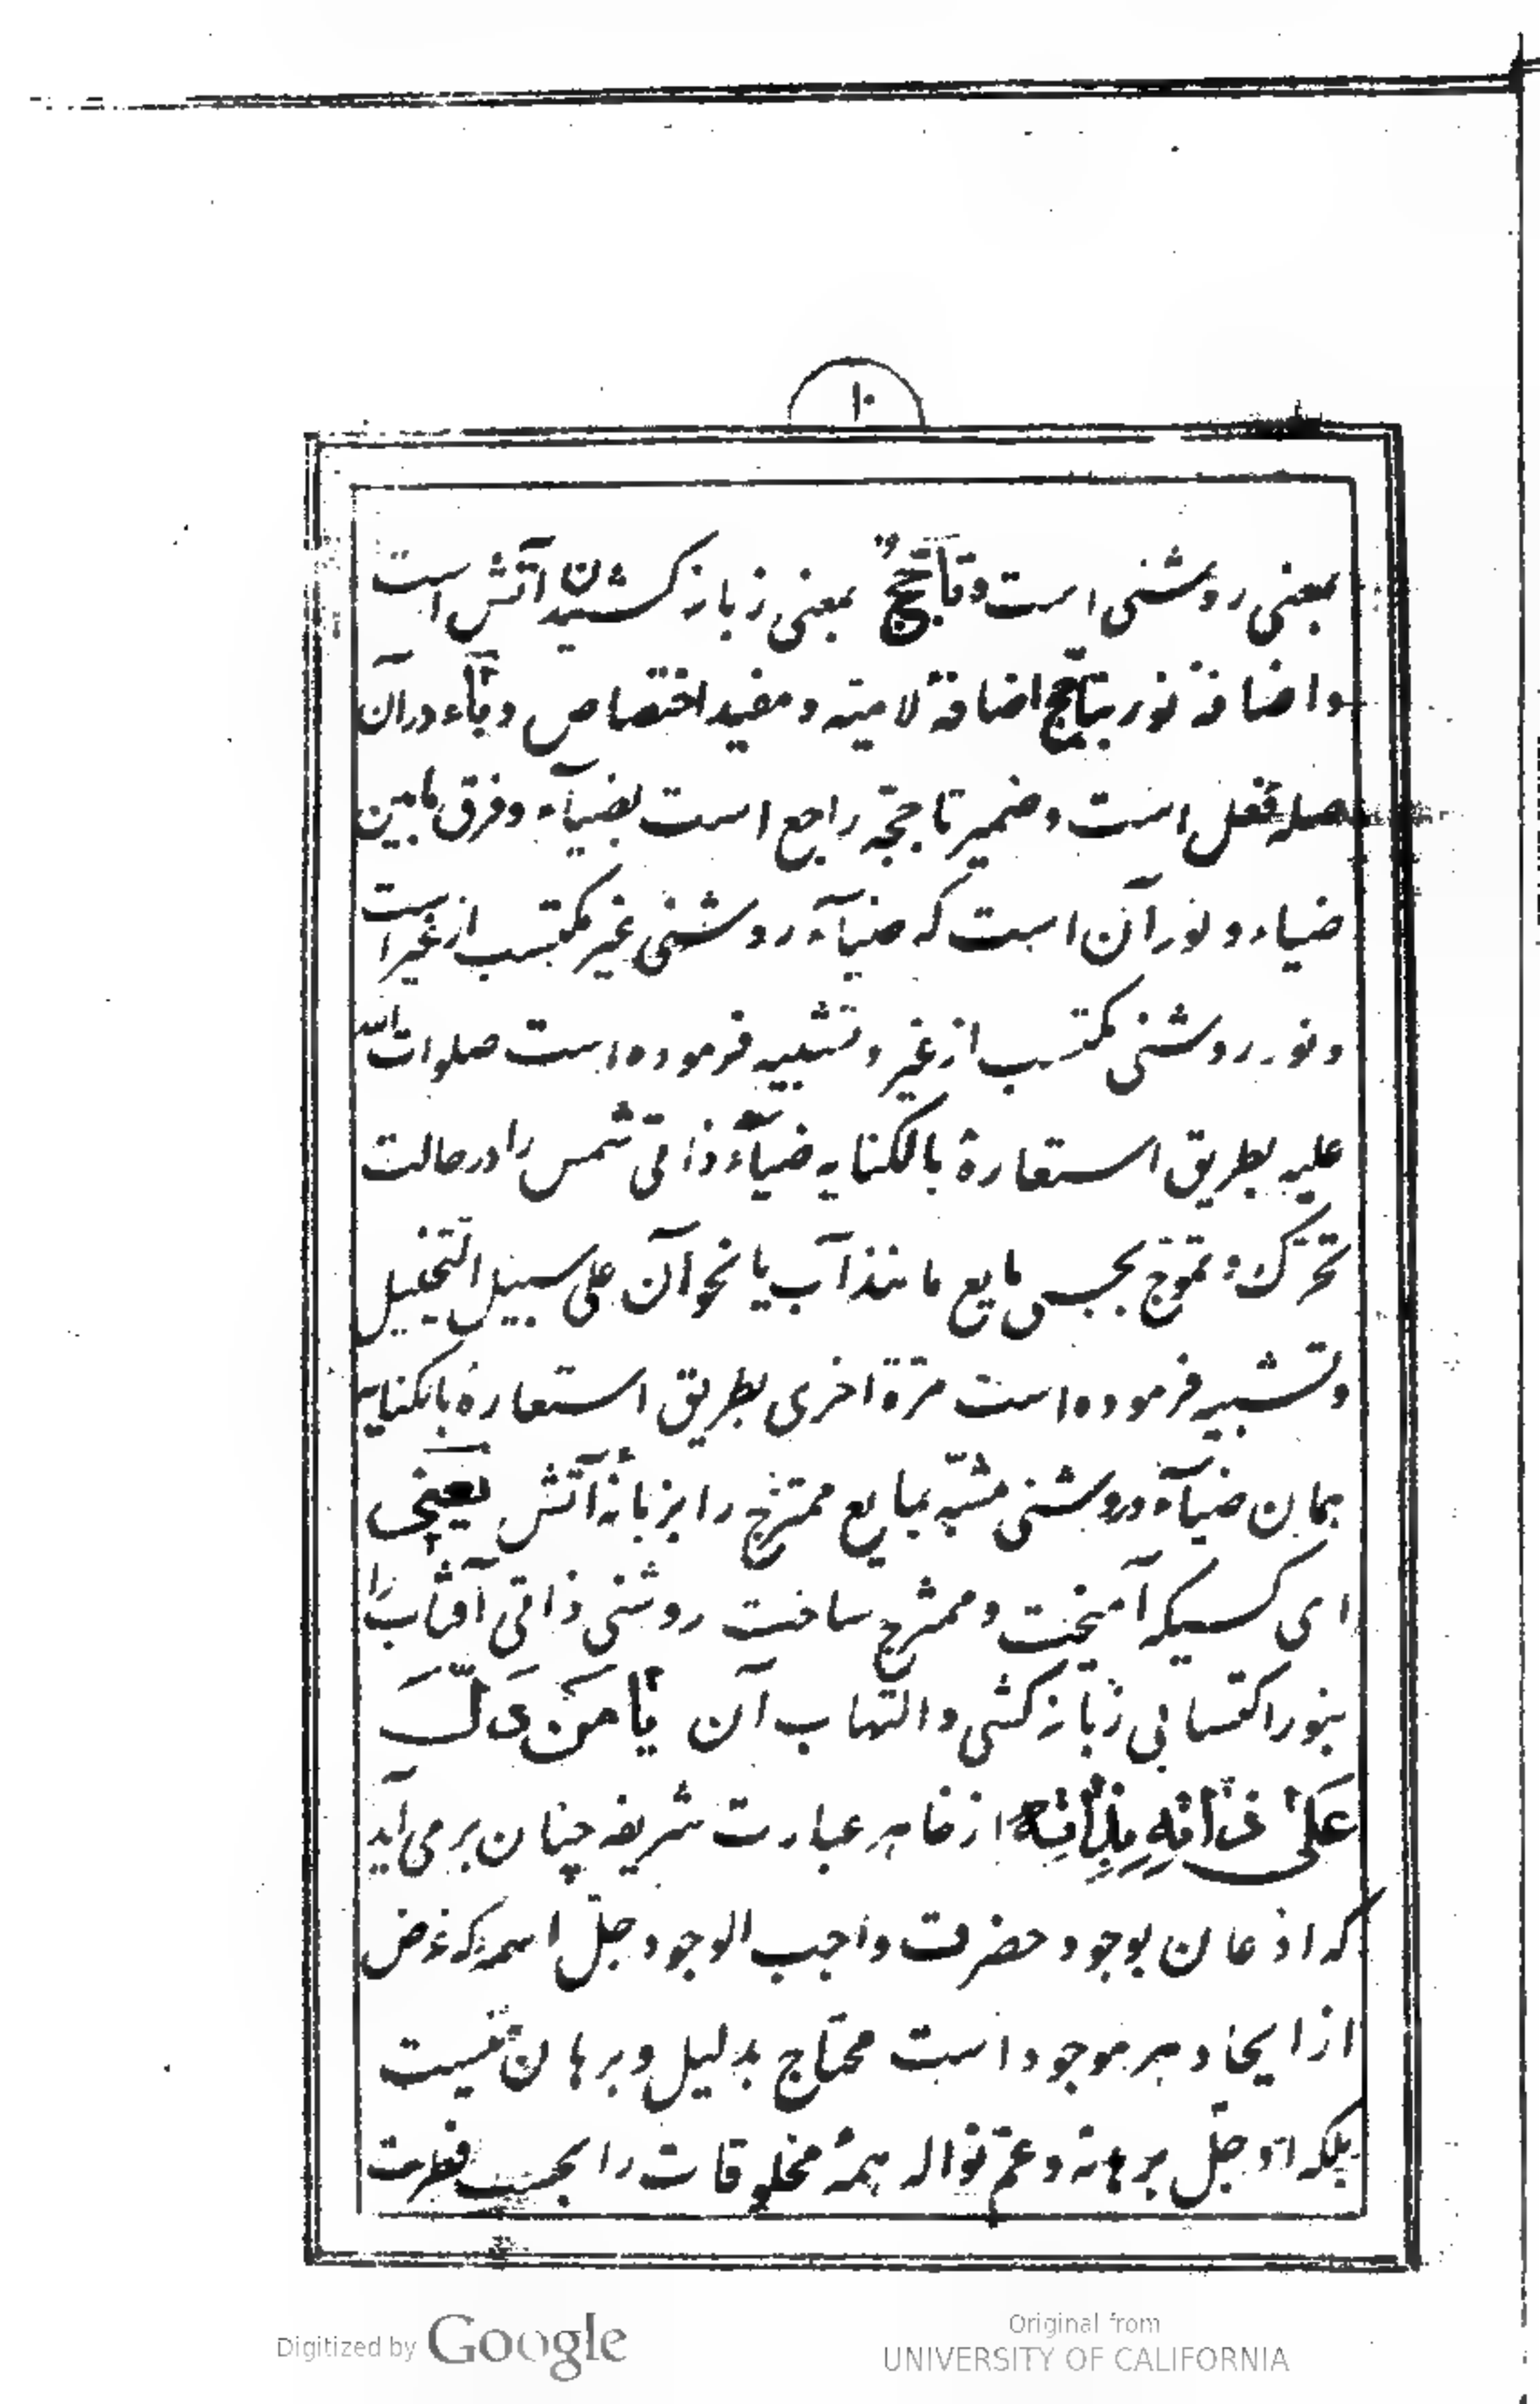 ١٠
بمعنی روشنی است و تَأَجُّجٌ بمعنی زبانه کشیدن آتش است
و اضافۀ نور بتأجّج اضافۀ لامیّه و مفید اختصاص و بآء در آن
صله فعل است و ضمیر تاججّه راجع است بضیآء و فرق مابین
ضیاء و نور آن است که ضیآء روشنی غیر مکتسب از غیر است
و نور روشنی مکتسب از غیر و تشبیه فرموده است صلوات الله
علیه بطریق استعارۀ بالکنایه ضیآء ذاتی شمس را در حالت
تحرّک و تموّج بجسمی مایع مانند آب یا نحو آن علی سبیل التخییل
و تشبیه فرموده است مرّة اخری بطریق استعارۀ بالکنایه
همان ضیآء و روشنی مشبّه بمایع ممتزج را بزبانۀ آتش یعنی
ای کسیکه آمیخت و ممتزج ساخت روشنی ذاتی آفتاب را
بنور اکتسابی زبانه کشی و التهاب آن یٰا مَنْ دَلَّ
عَلیٰ ذٰاتِهِ بِذٰاتِهِ از ظاهر عبارت شریفه چنان بر می آید
که اذعان بوجود حضرت واجب الوجود جلّ اسمه که غرض
از ایجاد هر موجود است محتاج بدلیل و برهان نیست
بلکه او جلّ برهانه و عمّ نواله همۀ مخلوقات را بحسب فطرت
Digitized by Google
Original from
UNIVERSITY OF CALIFORNIA